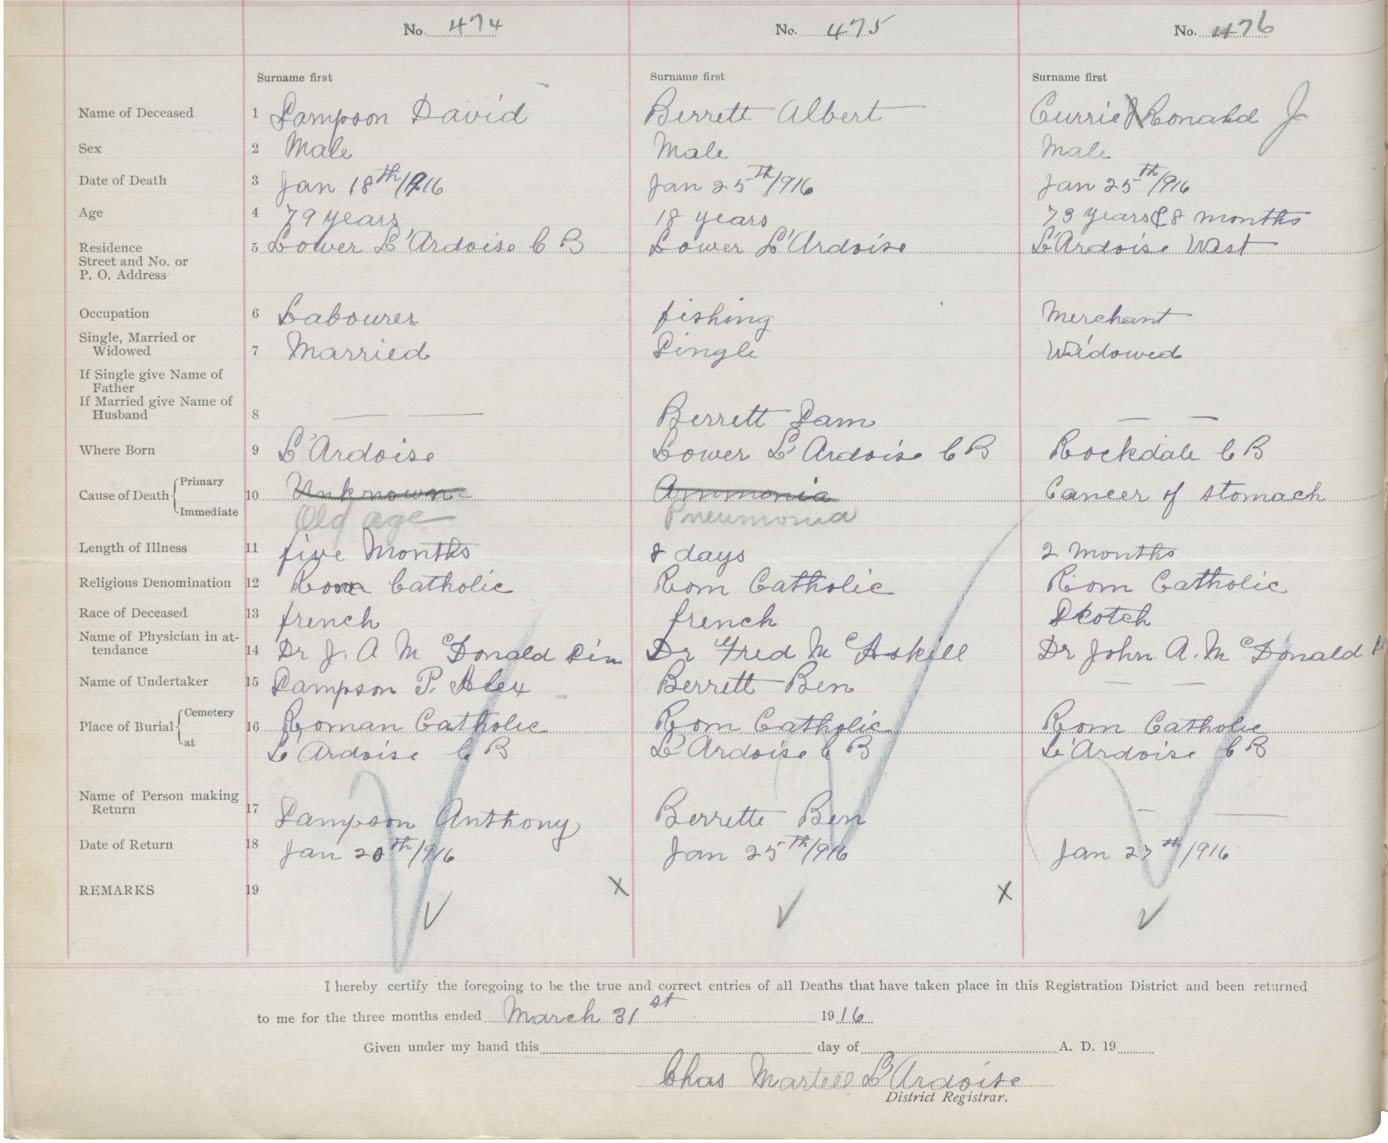 No. 474 No. 475 No. 476
Surname first Surname first Surname first
Name of Deceased 1 Sampson David Berrett Albert Currie Ronald J
Sex 2 Male Male Male
Date of Death 3 Jan 18th/1916 Jan 25th/1916 Jan 25th/1916
Age 4 79 years 18 years 73 years & 8 months
Residence 5 Lower L'Ardoise C B Lower L'Ardoise L'Ardoise West
Street and No. or
P. O. Address
Occupation 6 Labourer fishing Merchant
Single, Married or
Widowed 7 Married Single Widowed
If Single give Name of
Father
If Married give Name of
Husband 8 — — Berrett Sam — —
Where Born 9 L'Ardoise Lower L'Ardoise C B Rockdale C B
Cause of Death { Primary 10 Unknown Ammonia Cancer of stomach
Immediate Old age Pneumonia
Length of Illness 11 five Months 8 days 2 months
Religious Denomination 12 Rom Catholic Rom Catholic Rom Catholic
Race of Deceased 13 french french Scotch
Name of Physician in at-
tendance 14 Dr J. A McDonald Sin Dr Fred McAskill Dr John A. McDonald
Name of Undertaker 15 Sampson P. Alex Berrett Ben — —
Place of Burial { Cemetery 16 Roman Catholic Rom Catholic Rom Catholic
at L'Ardoise C B L'Ardoise C B L'Ardoise C B
Name of Person making
Return 17 Sampson Anthony Berrette Ben — —
Date of Return 18 Jan 20th/1916 Jan 25th/1916 Jan 27th/1916
REMARKS 19 X X
I hereby certify the foregoing to be the true and correct entries of all Deaths that have taken place in this Registration District and been returned
to me for the three months ended March 31st 1916
Given under my hand this day of A. D. 19
Chas Martell L'Ardoise
District Registrar.